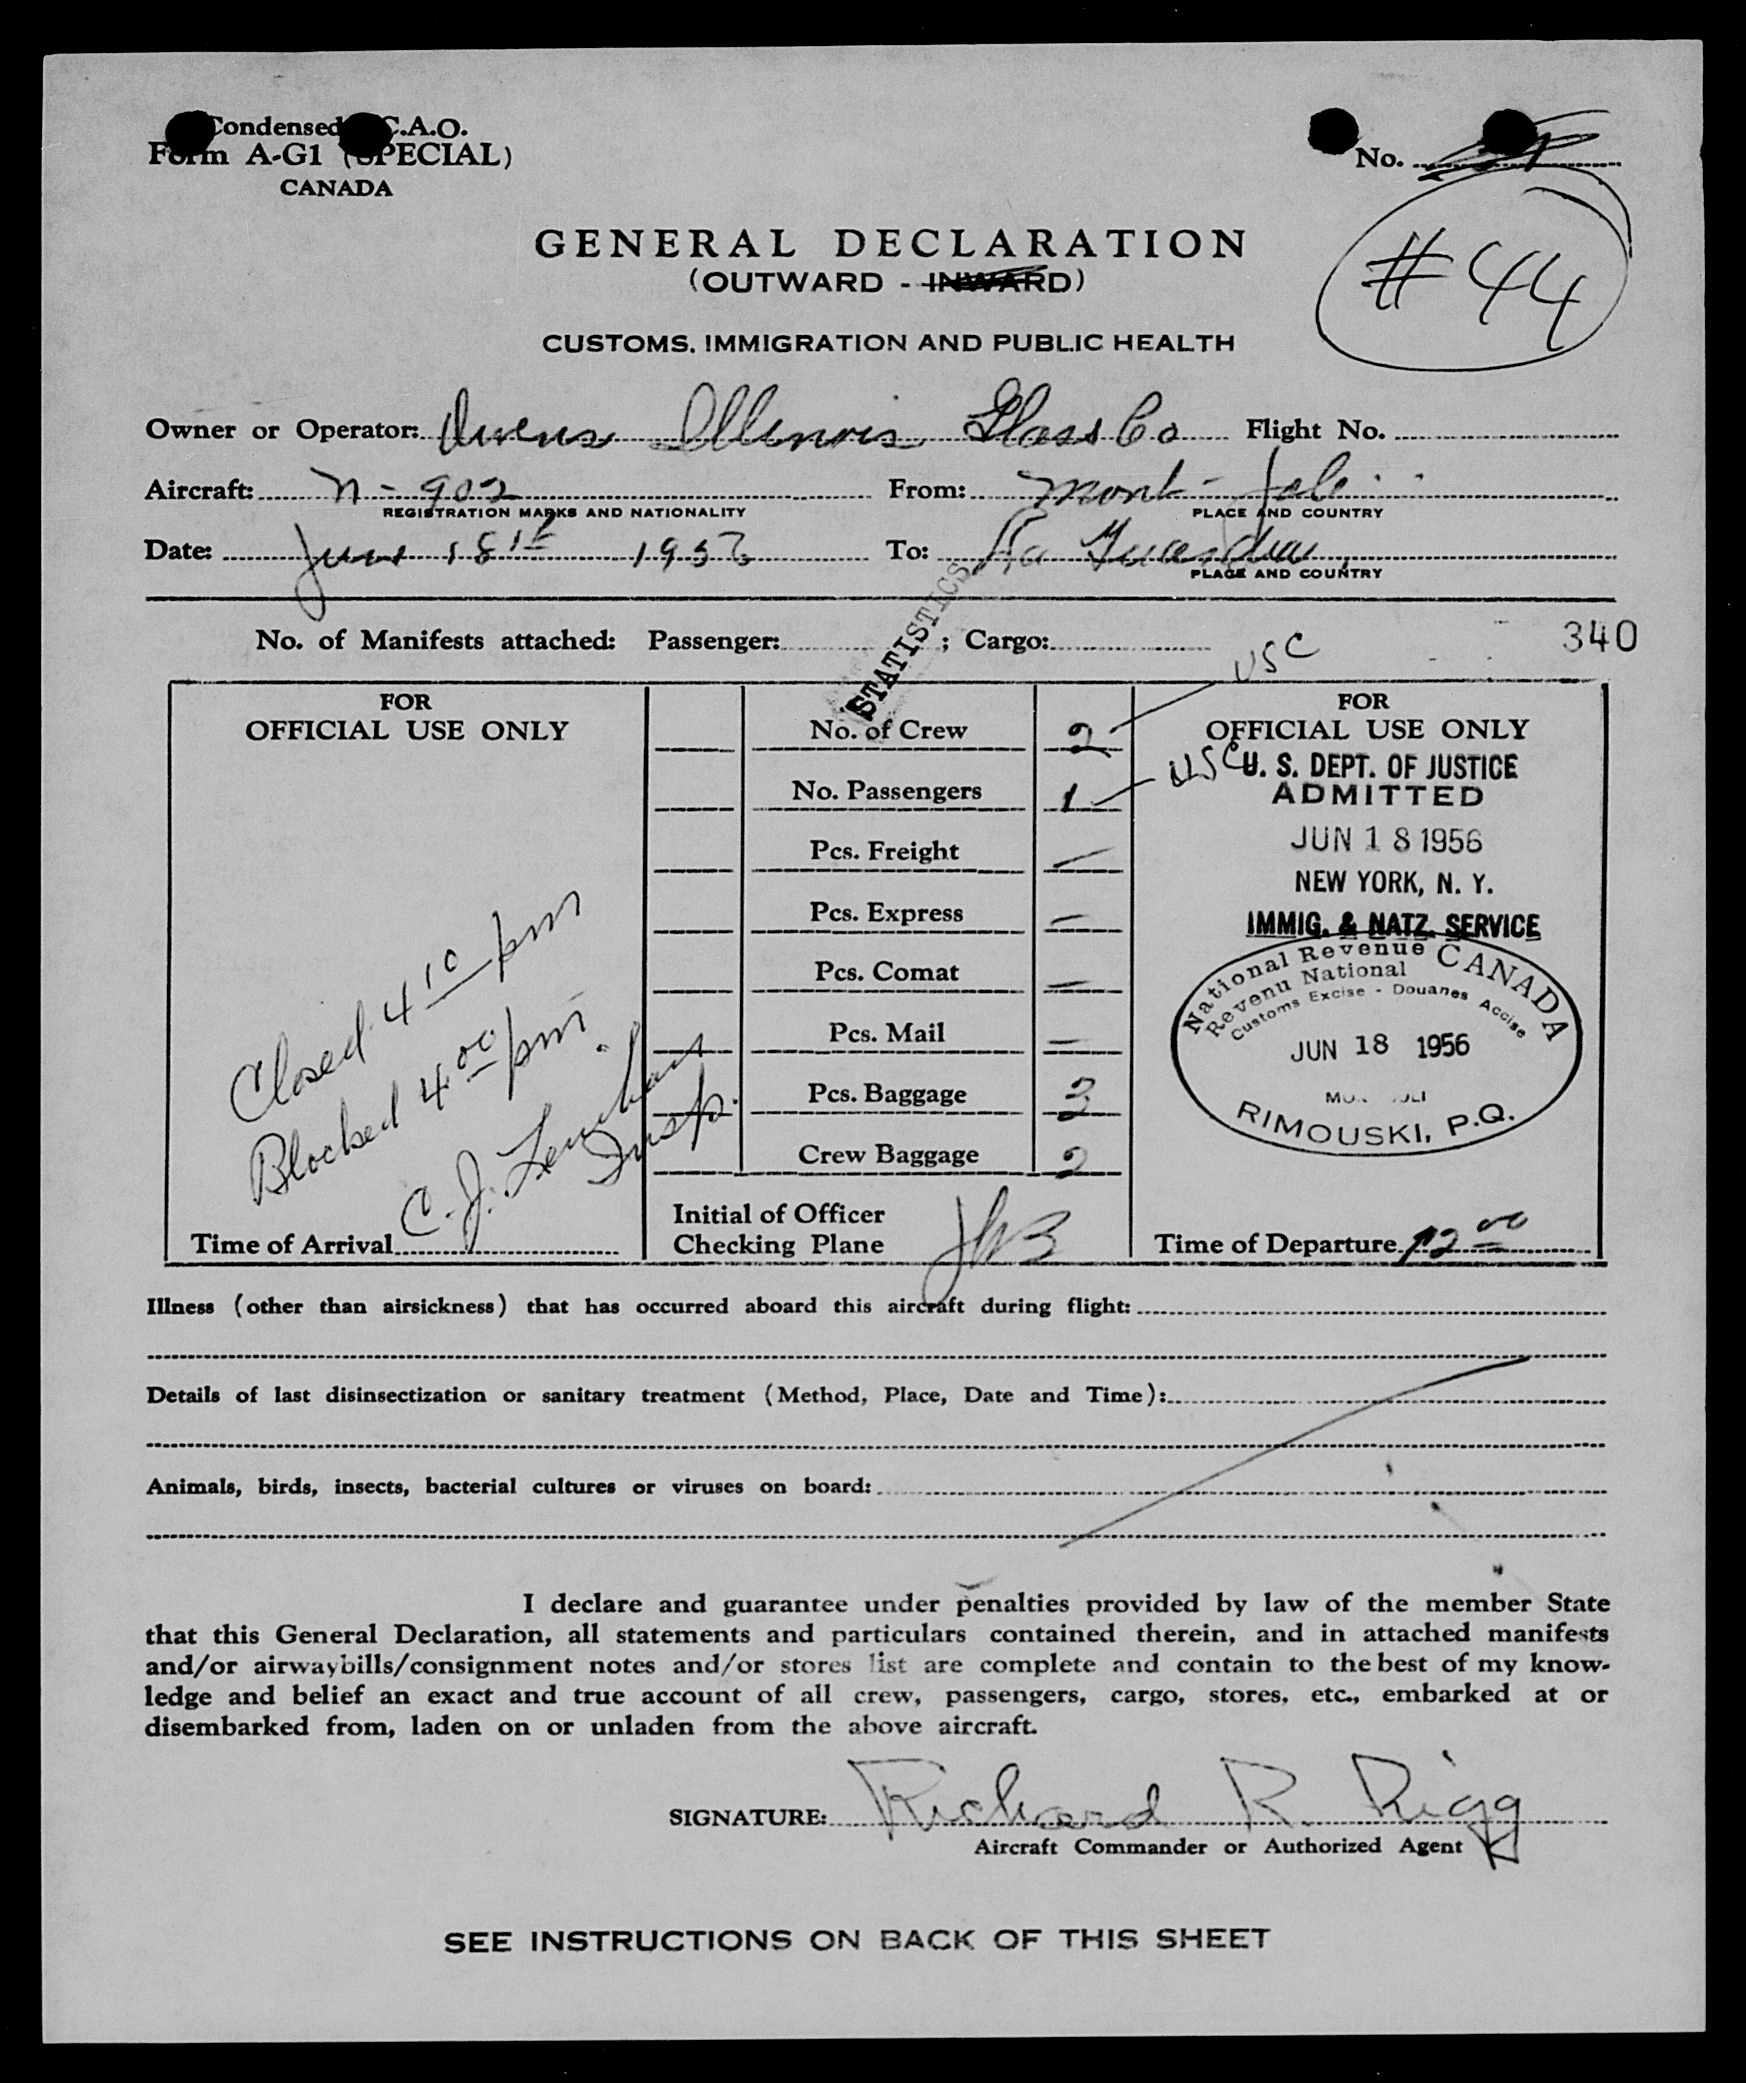 Condensed I.C.A.O.
Form A-G1 (SPECIAL)
CANADA
No.
#44
GENERAL DECLARATION
(OUTWARD - INWARD)
CUSTOMS, IMMIGRATION AND PUBLIC HEALTH
Owner or Operator: Owens Illinois Glass Co Flight No.
Aircraft: N-902 From: Mont-Joli
REGISTRATION MARKS AND NATIONALITY PLACE AND COUNTRY
Date: June 18th 1956 To: La Guardia
PLACE AND COUNTRY
No. of Manifests attached: Passenger: ; Cargo: 340
STATISTICS
USC
FOR
OFFICIAL USE ONLY
Closed 4 10 pm
Blocked 4 00 pm.
C. J.
Insp.
Time of Arrival
No. of Crew 2
No. Passengers 1
Pcs. Freight —
Pcs. Express —
Pcs. Comat —
Pcs. Mail —
Pcs. Baggage 3
Crew Baggage 2
Initial of Officer
Checking Plane JWB
FOR
OFFICIAL USE ONLY
USC
U. S. DEPT. OF JUSTICE
ADMITTED
JUN 18 1956
NEW YORK, N. Y.
IMMIG. & NATZ. SERVICE
National Revenue CANADA
Revenu National
Customs Excise - Douanes Accise
JUN 18 1956
RIMOUSKI, P.Q.
Time of Departure 12 00
Illness (other than airsickness) that has occurred aboard this aircraft during flight:
Details of last disinsectization or sanitary treatment (Method, Place, Date and Time):
Animals, birds, insects, bacterial cultures or viruses on board:
I declare and guarantee under penalties provided by law of the member State
that this General Declaration, all statements and particulars contained therein, and in attached manifests
and/or airwaybills/consignment notes and/or stores list are complete and contain to the best of my know-
ledge and belief an exact and true account of all crew, passengers, cargo, stores, etc., embarked at or
disembarked from, laden on or unladen from the above aircraft.
SIGNATURE: Richard R. Rigg
Aircraft Commander or Authorized Agent
SEE INSTRUCTIONS ON BACK OF THIS SHEET